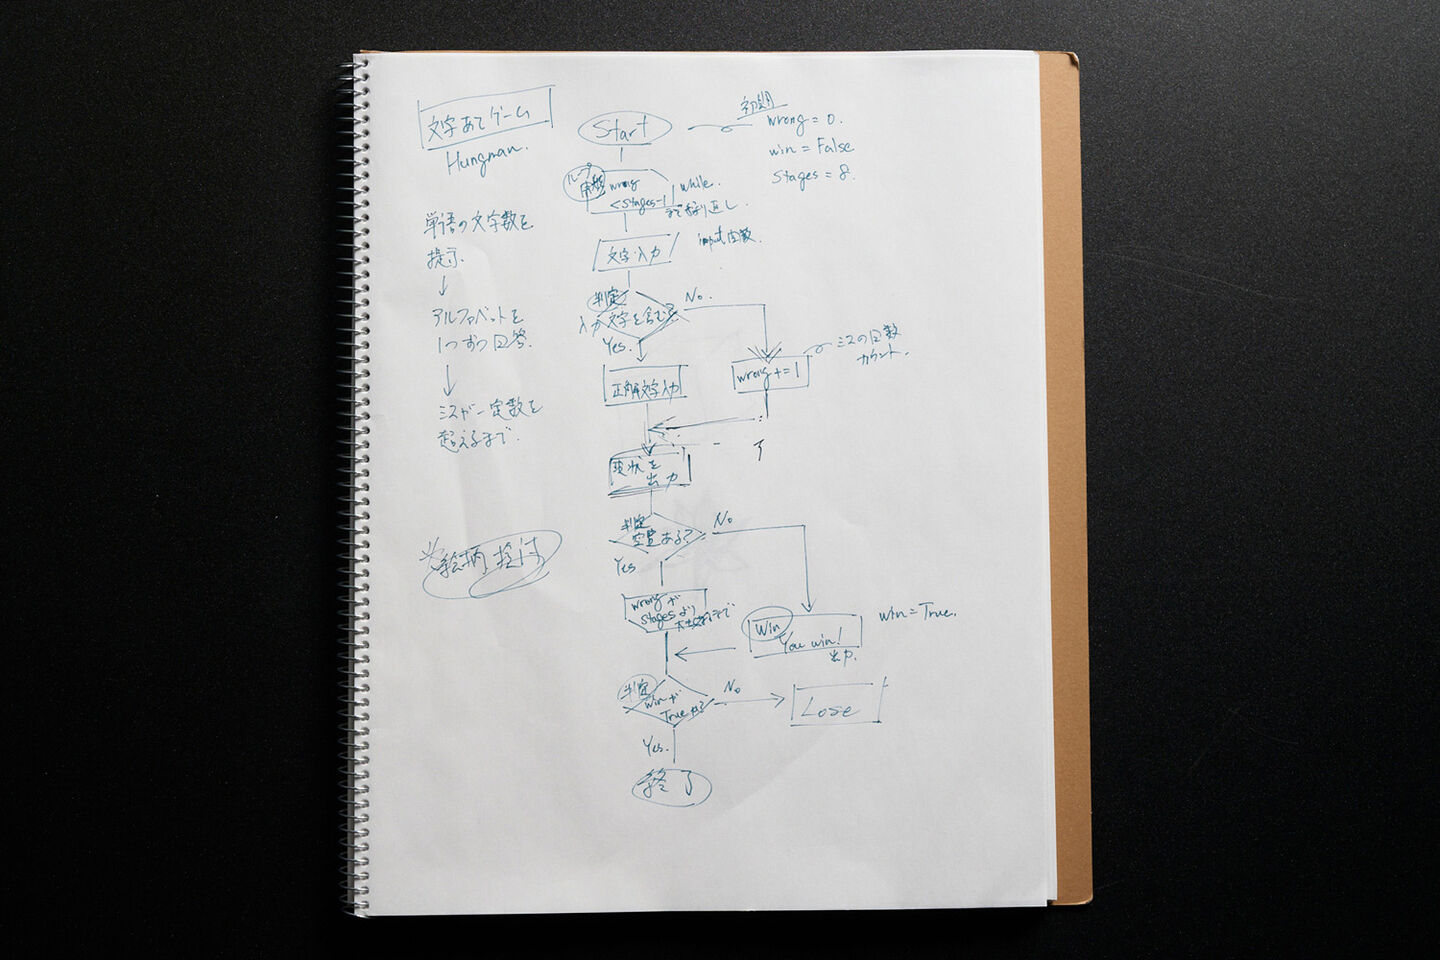 文字あてゲーム
Hungman.
単語の文字数を
提示.
アルファベットを
1つずつ回答.
ミスが一定数を
超えるまで.
※絵柄
Start
初期
wrong = 0.
win = False
Stages = 8.
ループ
wrong
<stages-1
while.
まで繰り返し.
文字入力
input関数.
判定
入力文字を含む?
No.
Yes.
正解文字入力
wrong += 1
ミスの回数
カウント.
現状を
出力
判定
空白ある?
No
Yes
wrongが
stagesより
まで
Win
You win!
出力.
win = True.
判定
winが
Trueか?
No
Lose
Yes.
終了